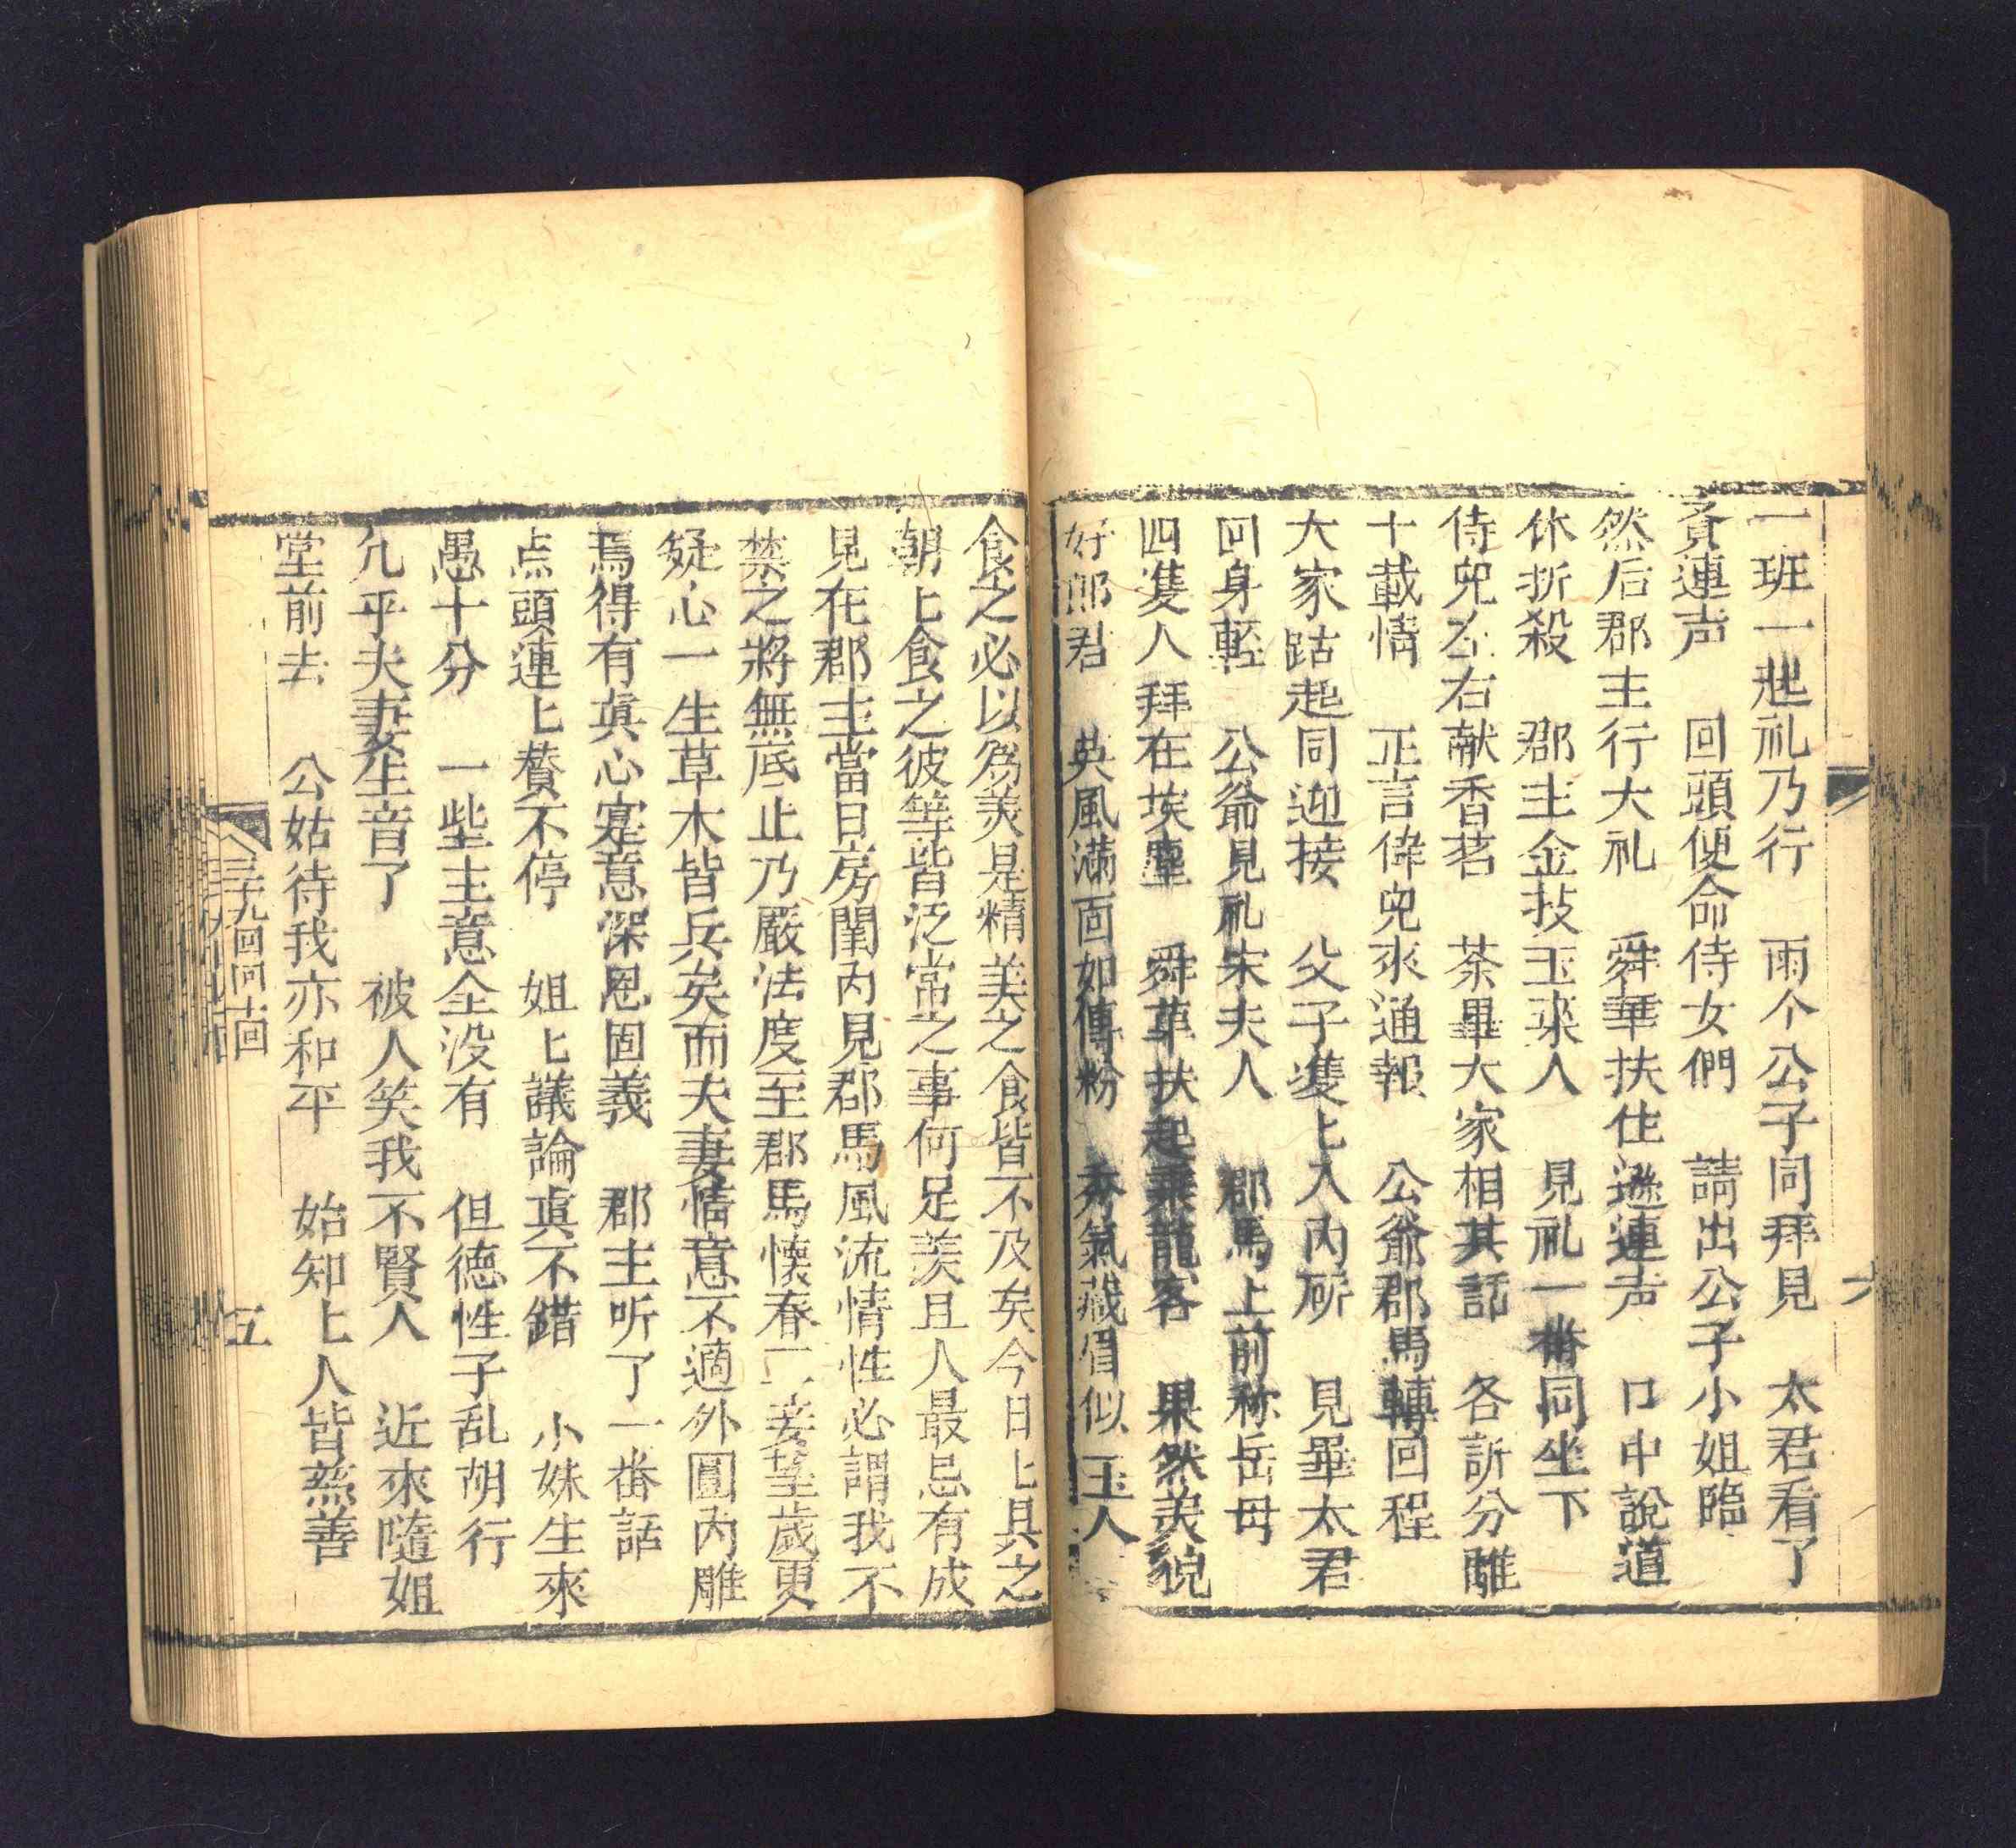 一班一起礼乃行　雨个公子同拜見　太君看了
賫連声　回頭便命侍女們　請出公子小姐臨
然后郡主行大礼　舜華扶住遜連声　口中說道
休折殺　郡主金技玉葉人　見礼一番同坐下
侍児左右献香茗　茶畢大家相其話　各訢分離
十載情　正言侍児來通報　公爺郡馬轉回程
大家跕起同迎接　父子雙上入內所　見畢太君
回身輕　公爺見礼宋夫人　郡馬上前称岳母
四隻人拜在埃塵　舜華扶起乗龍客　果然美貌
好郎君　英風滿面如傅粉　秀氣藏眉似玉人
食之必以為美是精美之食皆不及矣今日上具之
朝上食之彼等皆泛常之事何足羨且人最忌有成
見在郡主當日房闈內見郡馬風流情性必謂我不
禁之將無底止乃嚴法度至郡馬懐春一妾望歲更
疑心一生草木皆兵矣而夫妻情意不適外圓內雕
焉得有真心寔意深恩固義　郡主听了一番話
点頭連上賛不停　姐上議論真不錯　小妹生來
愚十分　一些主意全没有　但德性子乱胡行
九乎夫妻生音了　被人笑我不賢人　近來隨姐
堂前去　公姑待我亦和平　始知上人皆慈善
五